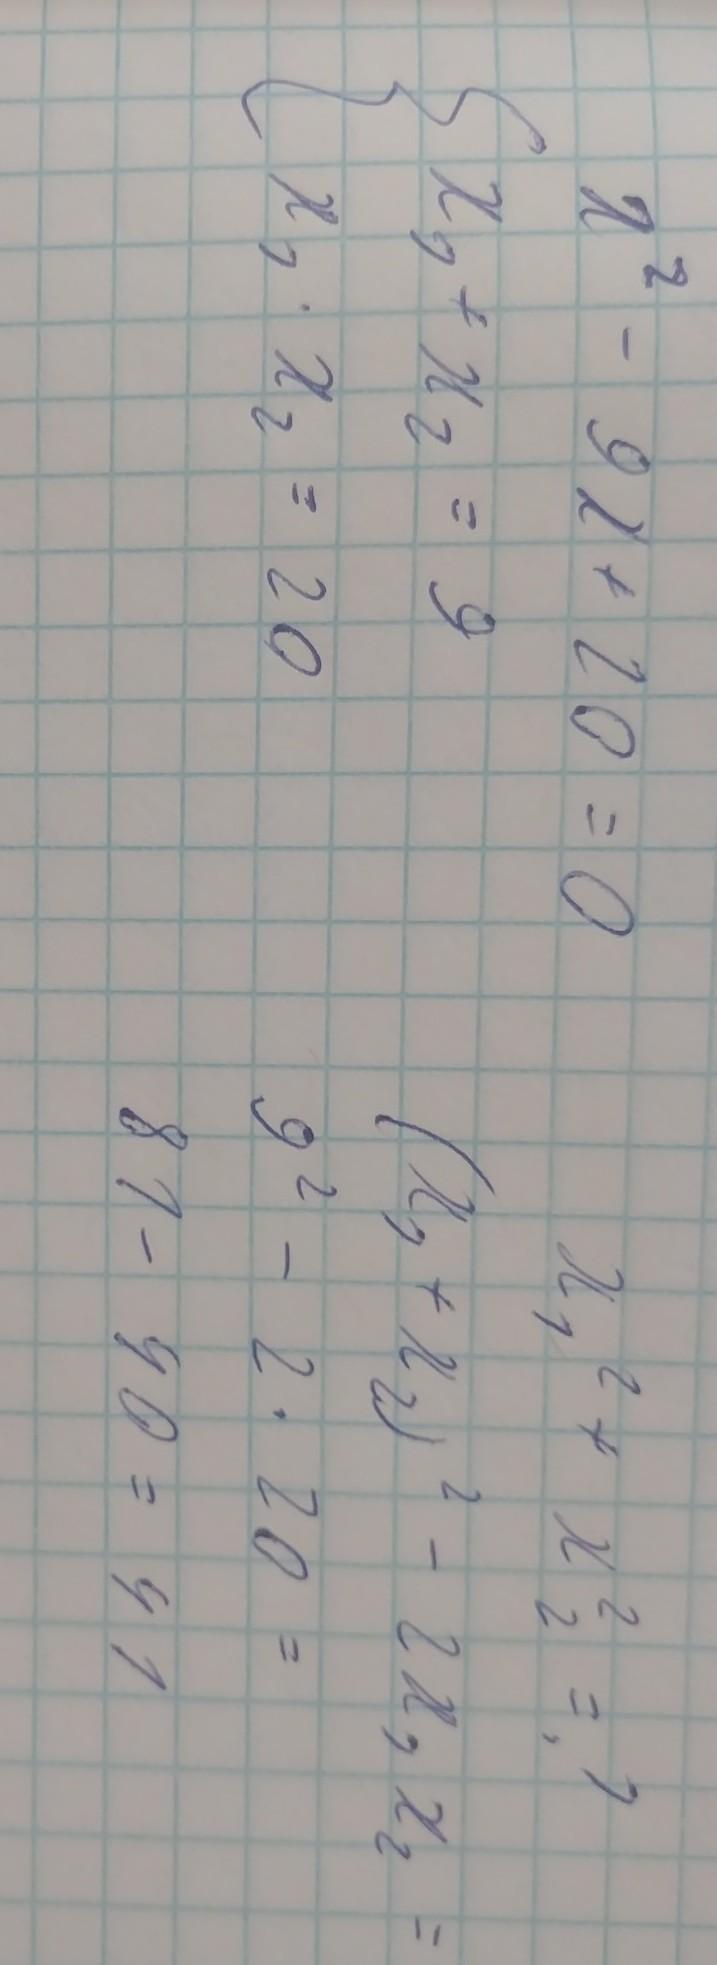 x² - 9x + 20 = 0
{ x₁ + x₂ = 9
x₁ · x₂ = 20
x₁² + x₂² = ?
(x₁ + x₂)² - 2x₁x₂ =
9² - 2 · 20 =
81 - 40 = 41